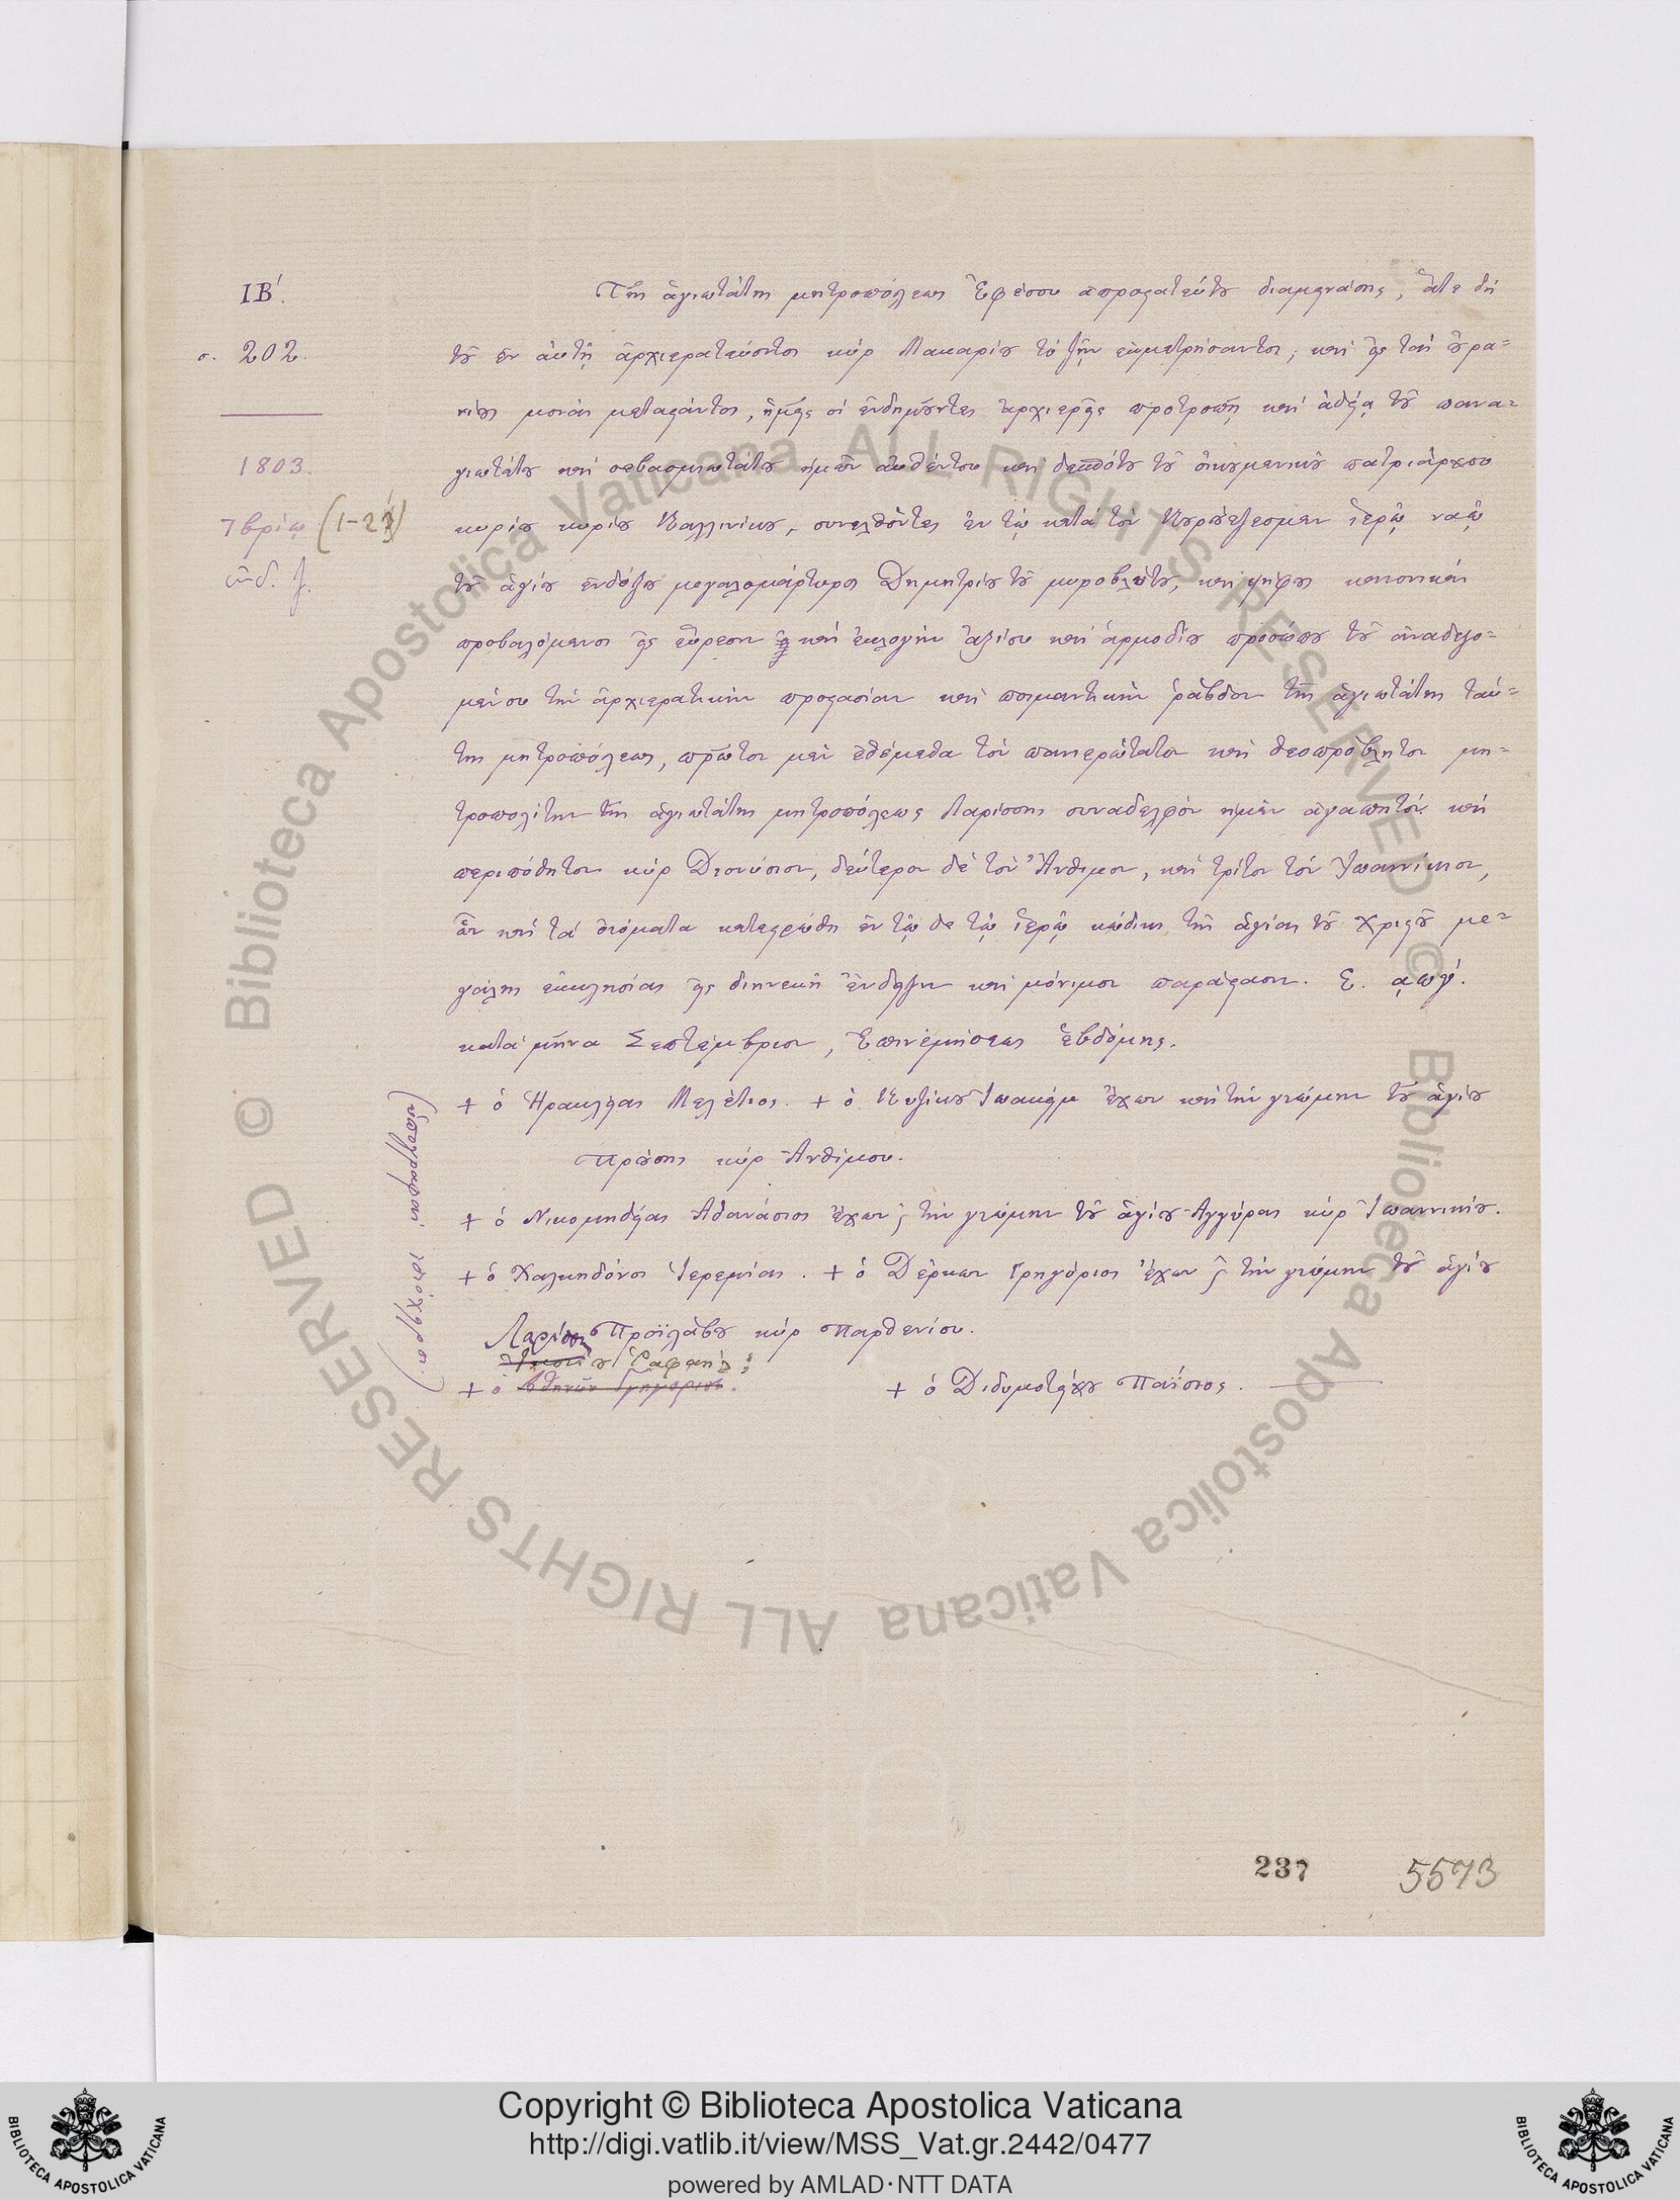 ΙΒ΄.
σ. 202.
1803.
7βρίῳ (1-23)
ἰνδ. ζ.
Τῆς ἁγιωτάτης μητροπόλεως Ἐφέσου ἀπροστατεύτου διαμεινάσης, ἅτε δὴ
τοῦ ἐν αὐτῇ ἀρχιερατεύοντος κὺρ Μακαρίου τὸ ζῆν ἐκμετρήσαντος, καὶ εἰς τὰς οὐρα=
νίους μονὰς μεταστάντος, ἡμεῖς οἱ ἐνδημοῦντες ἀρχιερεῖς προτροπῇ καὶ ἀδείᾳ τοῦ πανα=
γιωτάτου καὶ σεβασμιωτάτου ἡμῶν αὐθέντου καὶ δεσπότου τοῦ οἰκουμενικοῦ πατριάρχου
κυρίου κυρίου Καλλινίκου, συνελθόντες ἐν τῷ κατὰ τὸν Κουρούτζεσμεν ἱερῷ ναῷ
τοῦ ἁγίου ἐνδόξου μεγαλομάρτυρος Δημητρίου τοῦ μυροβλύτου, καὶ ψήφους κανονικὰς
προβαλόμενοι εἰς εὕρεσιν καὶ ἐκλογὴν ἀξίου καὶ ἁρμοδίου προσώπου τοῦ ἀναδεξο=
μένου τὴν ἀρχιερατικὴν προστασίαν καὶ ποιμαντικὴν ῥάβδον τῆς ἁγιωτάτης ταύ=
της μητροπόλεως, πρῶτον μὲν ἐθέμεθα τὸν πανιερώτατον καὶ θεοπρόβλητον μη=
τροπολίτην τῆς ἁγιωτάτης μητροπόλεως Λαρίσσης συναδελφὸν ἡμῶν ἀγαπητὸν καὶ
περιπόθητον κὺρ Διονύσιον, δεύτερον δὲ τὸν Ἄνθιμον, καὶ τρίτον τὸν Ἰωαννίκιον,
ὧν καὶ τὰ ὀνόματα κατεστρώθη ἐν τῷδε τῷ ἱερῷ κώδικι τῆς ἁγίας τοῦ Χριστοῦ με=
γάλης ἐκκλησίας εἰς διηνεκῆ ἔνδειξιν καὶ μόνιμον παράστασιν. Ἐ. αωγ΄.
κατὰ μῆνα Σεπτέμβριον, Ἐπινεμήσεως ἑβδόμης.
+ ὁ Ἡρακλείας Μελέτιος. + ὁ Κυζίκου Ἰωακεὶμ ἔχων καὶ τὴν γνώμην τοῦ ἁγίου
Προύσης κὺρ Ἀνθίμου.
+ ὁ Νικομηδείας Ἀθανάσιος ἔχων ϗ τὴν γνώμην τοῦ ἁγίου Ἀγγύρας κὺρ Ἰωαννικίου.
+ ὁ Χαλκηδόνος Ἱερεμίας. + ὁ Δέρκων Γρηγόριος ἔχων ϗ τὴν γνώμην τοῦ ἁγίου
Προϊλάβου κὺρ Παρθενίου.
+ ὁ + ὁ Διδυμοτείχου Παΐσιος.
(ὑπογραφαὶ ἰδιόχειροι)
237 5573
Copyright © Biblioteca Apostolica Vaticana
http://digi.vatlib.it/view/MSS_Vat.gr.2442/0477
powered by AMLAD·NTT DATA